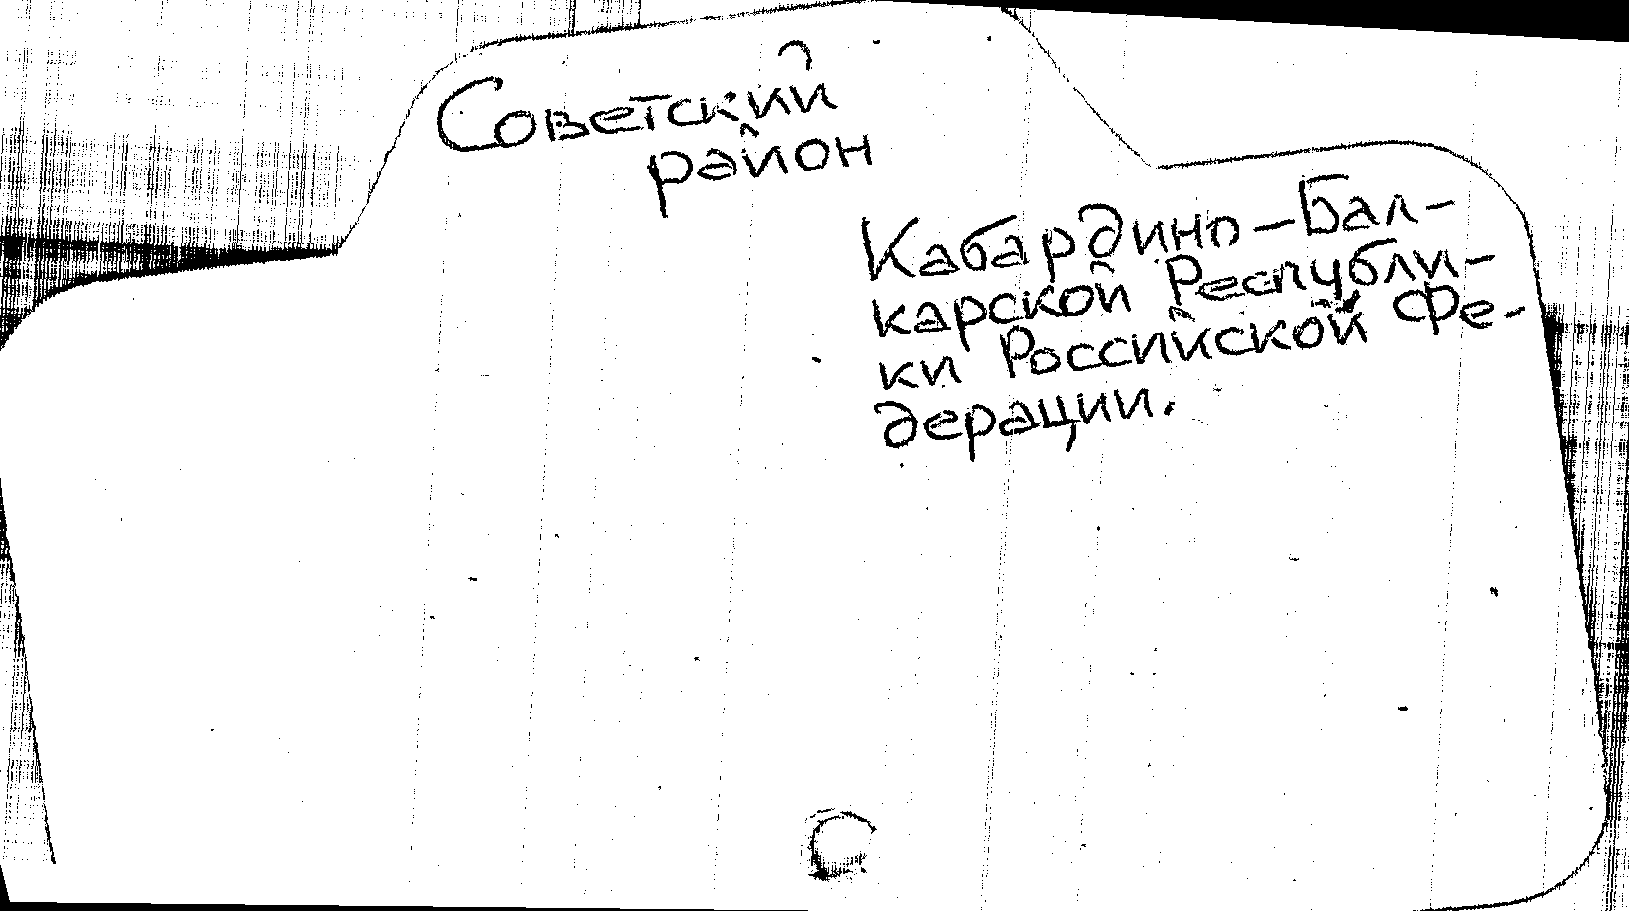 Советский
район
Кабардино-Бал-
карской Республи-
ки Российской Фе-
дерации.